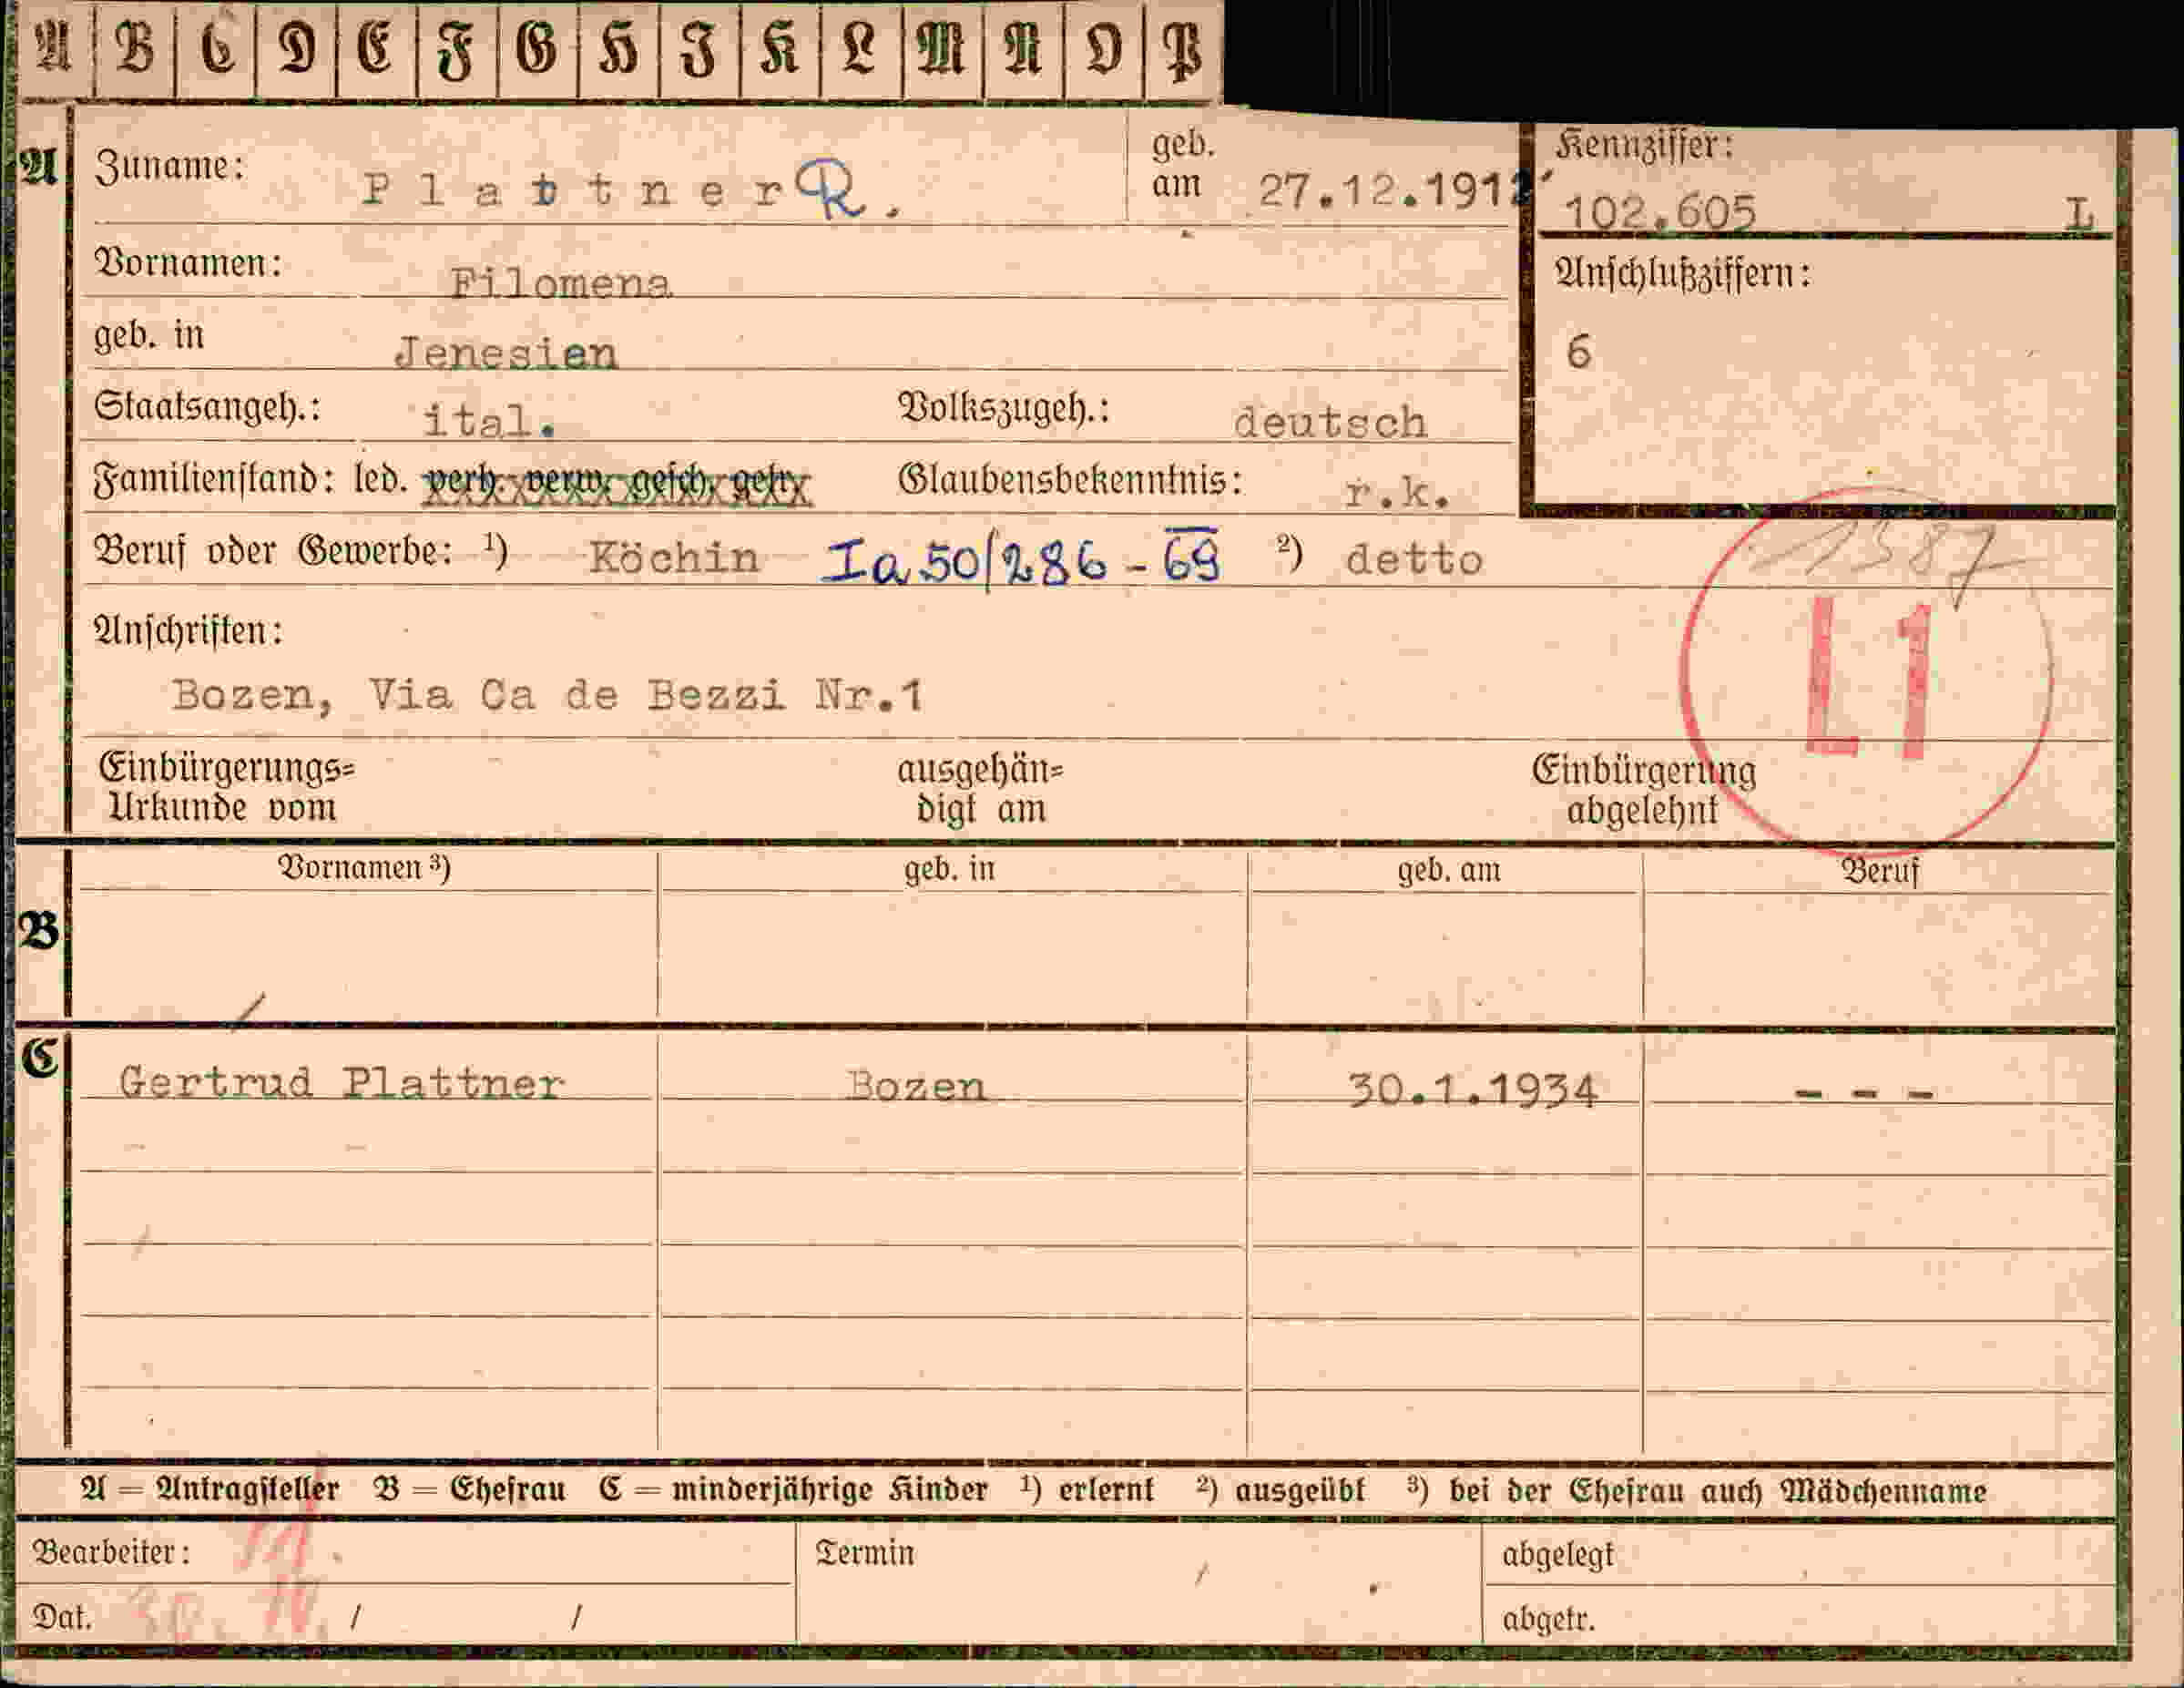 A B C D E F G H I K L M N O P
A Zuname: Plattner R. geb. am 27.12.191
Kennziffer: 102.605 L
Vornamen: Filomena
Anschlußziffern:
geb. in Jenesien
6
Staatsangeh.: ital. Volkszugeh.: deutsch
Familienstand: led. verh. verw. gesch. getr. Glaubensbekenntnis: r.k.
Beruf oder Gewerbe: ¹) Köchin Ia 50/286-69 ²) detto
1387
Anschriften:
L1
Bozen, Via Ca de Bezzi Nr.1
Einbürgerungs= ausgehän= Einbürgerung
Urkunde vom digt am abgelehnt
Vornamen ³) geb. in geb. am Beruf
B
C
Gertrud Plattner Bozen 30.1.1934 - - -
A = Antragsteller B = Ehefrau C = minderjährige Kinder ¹) erlernt ²) ausgeübt ³) bei der Ehefrau auch Mädchenname
Bearbeiter: Termin abgelegt
Dat. / / abgetr.